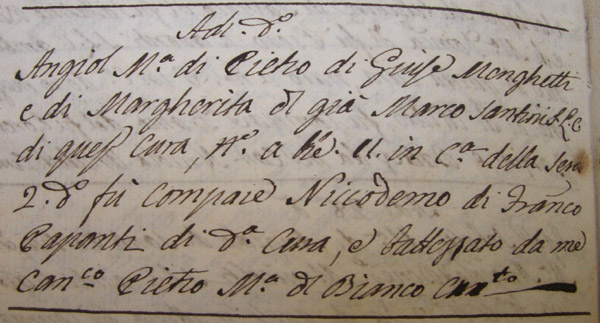 Adi d.º
Angiol M.ª di Pietro di Giuse Menghetti
e di Margherita dl già Marco Santini
di quest Cura, N.º a h'e. 11. in C.ª della Sera
2. d.º fù Compare Niccodemo di Franco
Papanti di d.ª Cura, e Battezzato da me
Can.co Pietro M.ª dl Bianco